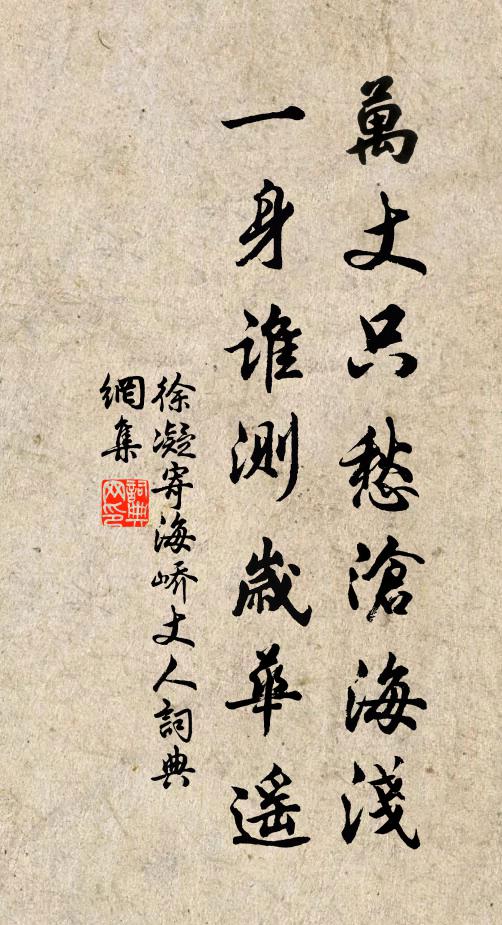 萬丈只愁滄海淺
一身誰測歲華遥
徐凝寄海嶠丈人詞典
網集
詞典
网印